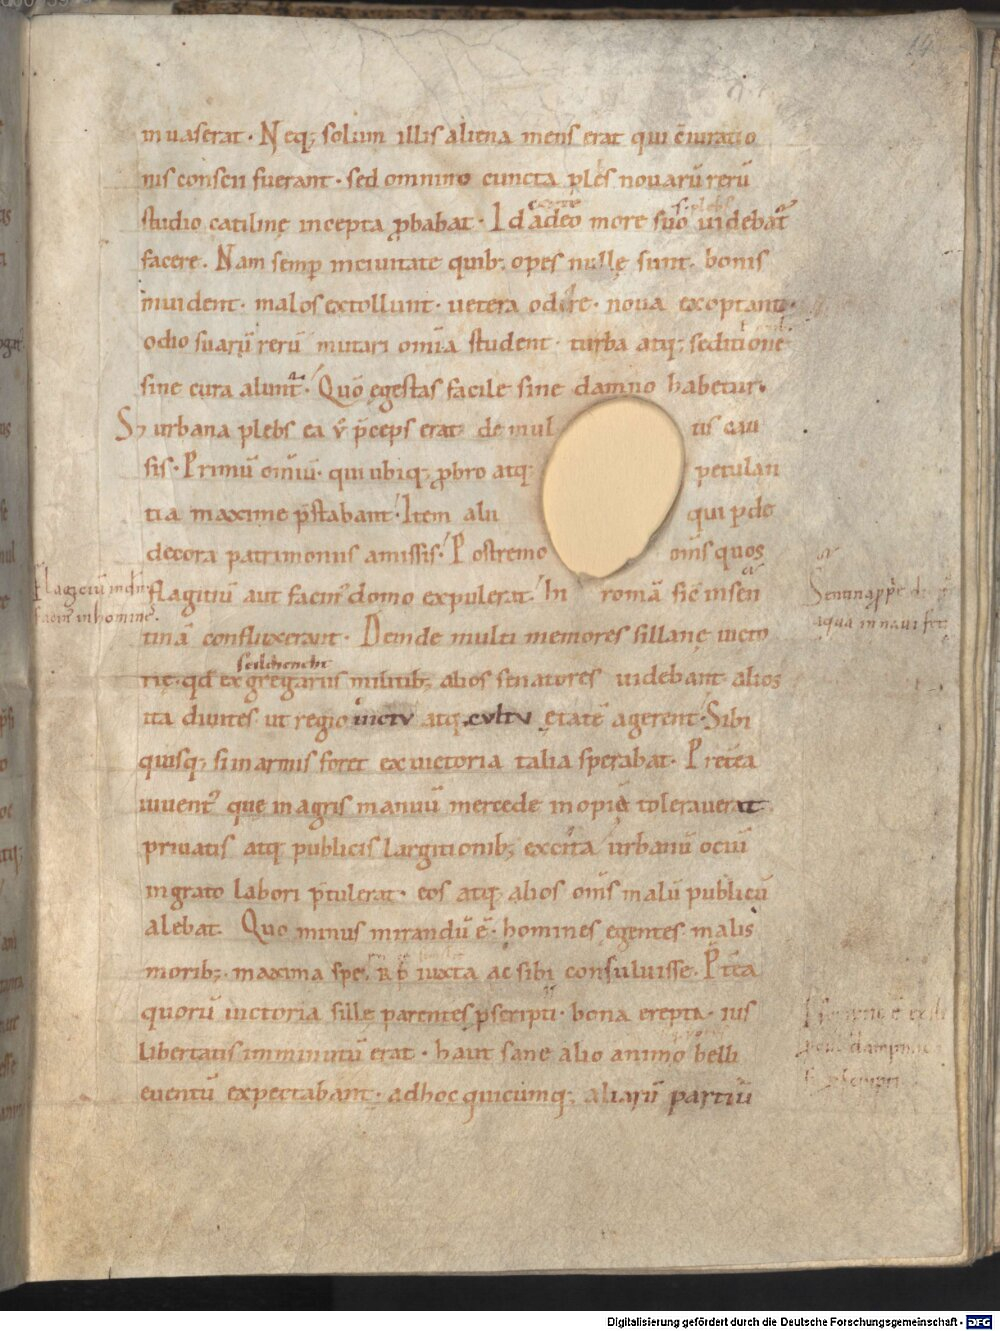 14
inuaserat · Neq; solum illis aliena mens erat qui c̄iuratio
nis conscii fuerant · sed omnino cuncta plēs nouarū rerū
studio catiline incepta ꝓbabat · Id adeo more suo uidebat᷑
facere . Nam semp̄ inciuitate quib; opes nullę sunt · bonis
inuident · malos extollunt · uetera odire · noua exoptant ·
odio suarū rerū mutari omīa student · turba atq; seditione
sine cura alunt᷑ · Quō egestas facile sine damno habetur .
S; urbana plebs ea ū p̄ceps erat de mul tis cau
sis · Primū omīū · qui ubiq; ꝓbro atq; petulan
tia maxime p̄stabant · Item alii qui p̱de
decora patrimoniis amissis · Postremo om̄s quos
flagitiū aut facin᷒ domo expulerat · In romā sic̄ insen
tinā confluxerant · Deinde multi memores sillanę uicto
rię · qđ ex gregariis militib; alios senatores uidebant alios
ita diuites ut regio uictu atq; cultu ętatē agerent · Sibi
quisq; si inarmis foret ex uictoria talia sperabat · Pretea
iuuent᷒ que in agris manuū mercede inopiā tolerauerat
priuatis atq; publicis largitionib; excita urbanū ociū
ingrato labori p̄tulerat · eos atq; alios om̄s malū publicū
alebat Quo minus mirandū ē · homines egentes malis
morib; · maxima spe · R P iuxta ac sibi consuluisse · Pt̄ea
quorū uictoria sillę parentes ꝓscripti · bona erepta · ius
libertatis imminutū erat · haut sane alio animo belli
euentū expectabant · adhoc quicumq; aliarū partiū
Flagiciū in dn̄
facin᷒ in homine
aqua in naui
Digitalisierung gefördert durch die Deutsche Forschungsgemeinschaft - DFG